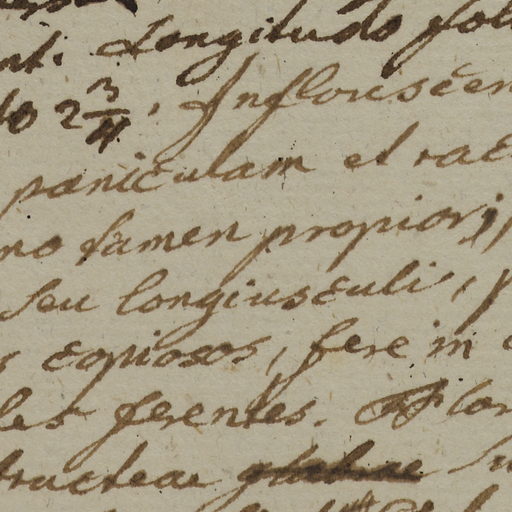 nt. Longitudo fol
to 2 3/4, Infloriscen
paniculam et rac
no tamen propiori,
seu longiusculi,
s copiosos, fere in
les ferentes. Flor
tracteae